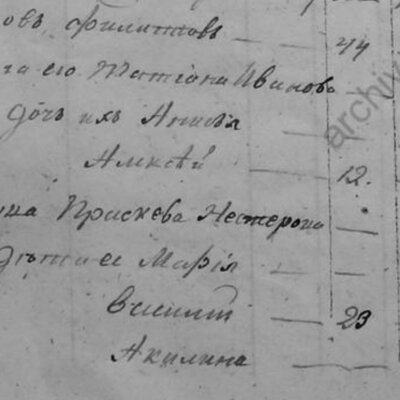 овъ Филиповъ — — 44
на его Татiона Иванова —
Дочь ихъ Анисiя —
Алисѣй — 12.
на Прискева Нестерова —
Дѣти ее Марiя — —
Василiй — 23
Акилина —
archiv